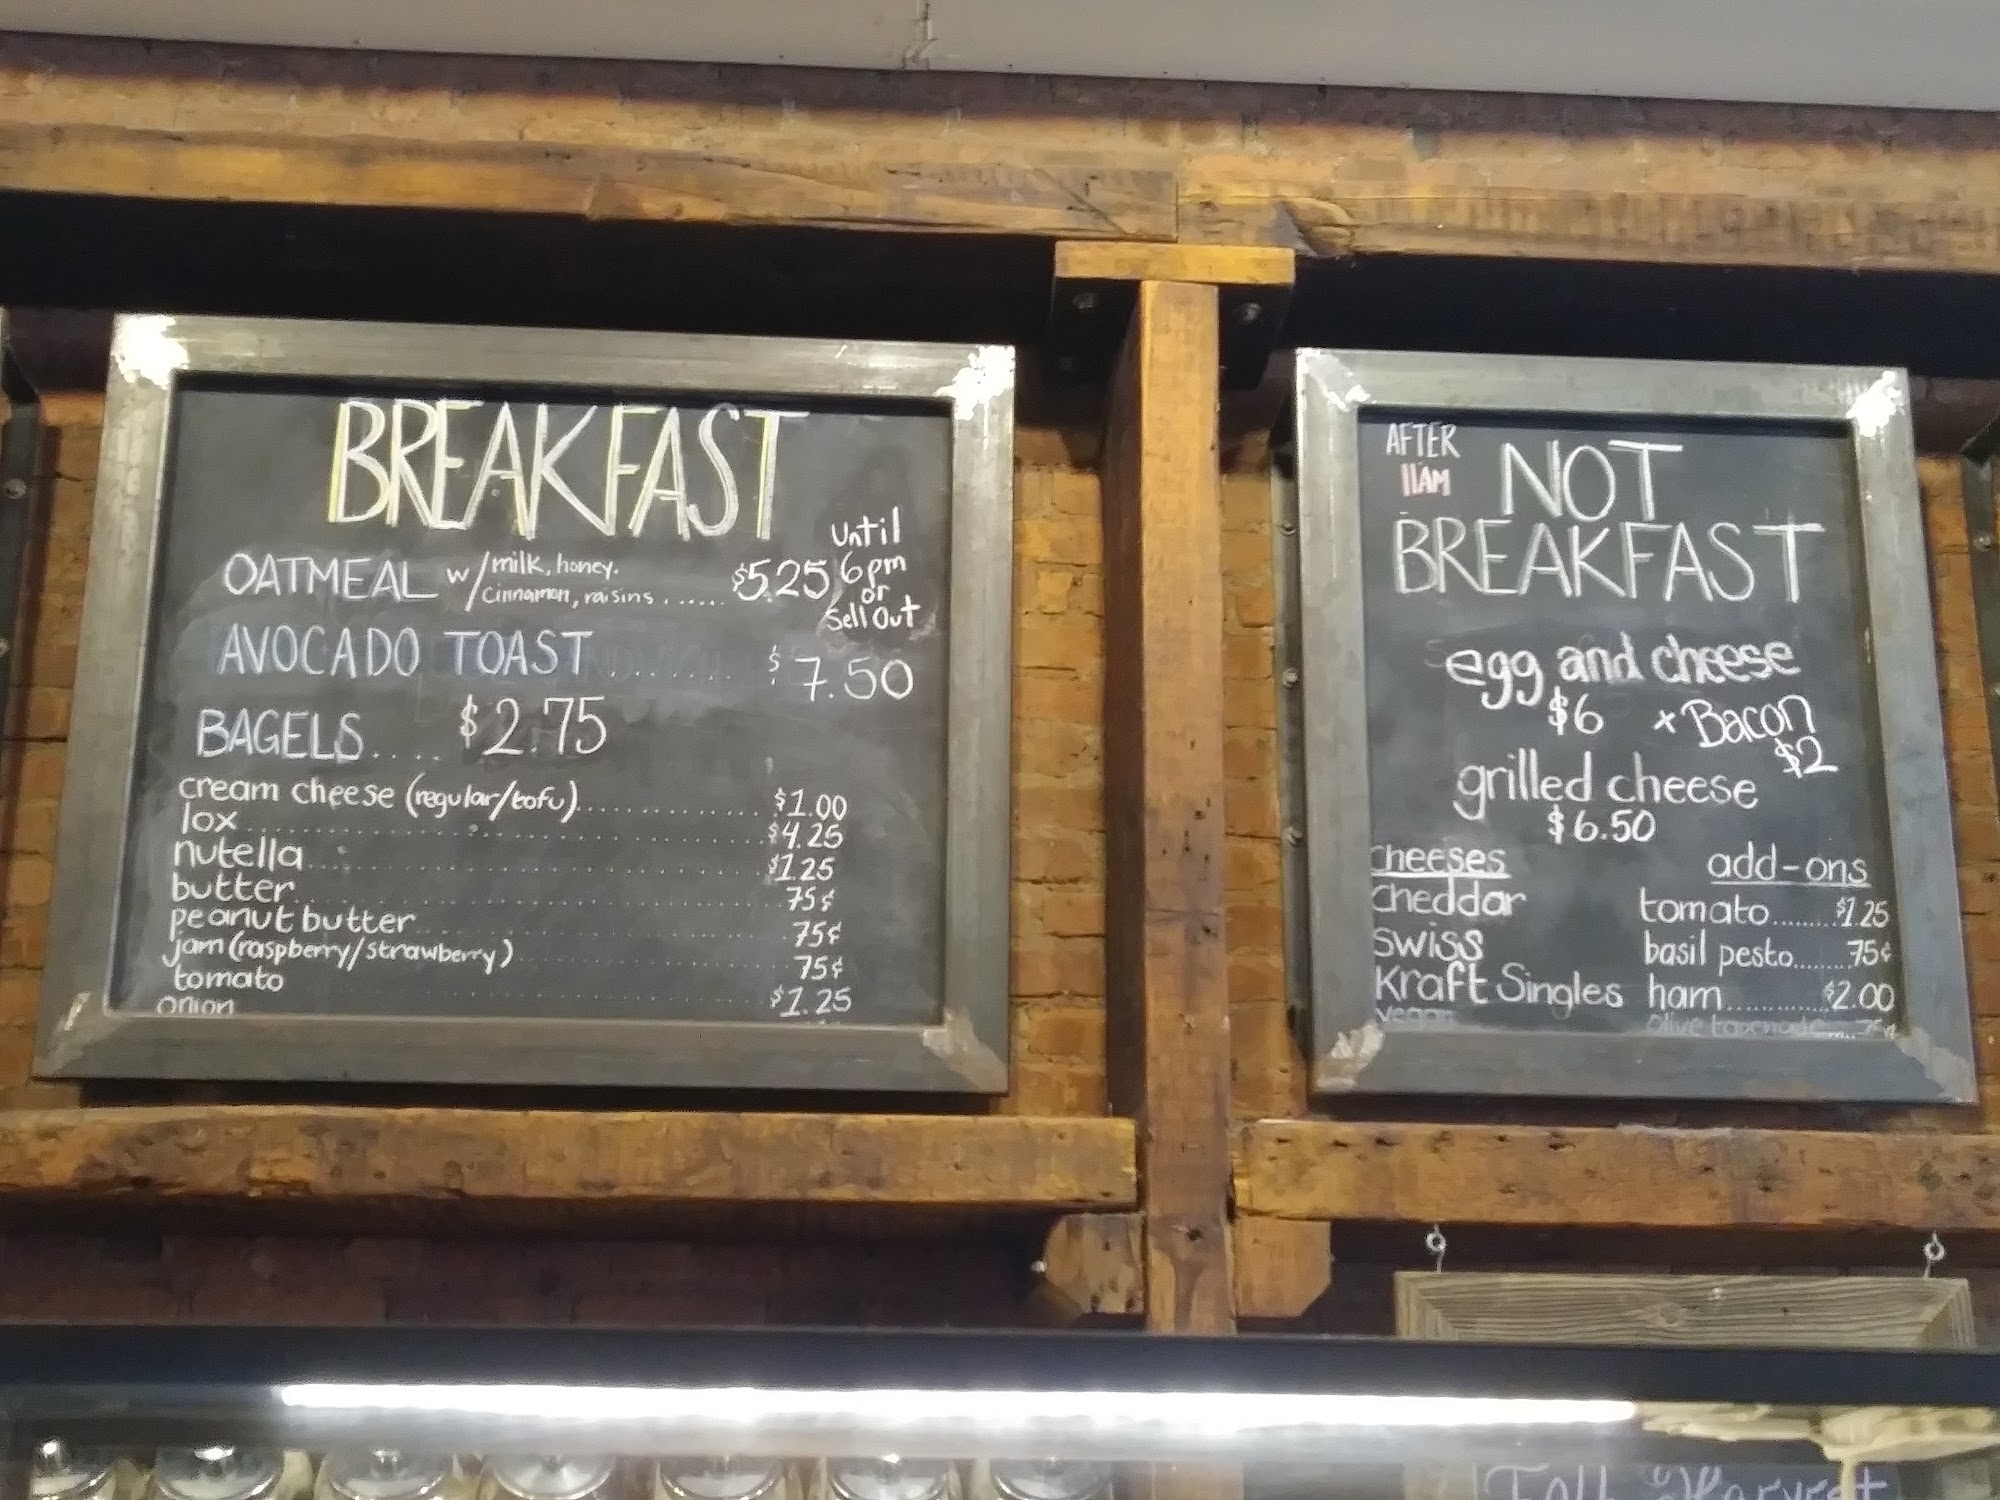 BREAKFAST
OATMEAL w/ milk, honey.
cinnamon, raisins ...... $5.25
until
6pm
or
Sell Out
AVOCADO TOAST ....... $7.50
BAGELS.... $2.75
cream cheese (regular/tofu)............ $1.00
lox............ $4.25
nutella............ $1.25
butter............ 75¢
peanut butter............ 75¢
jam (raspberry/strawberry)............ 75¢
tomato ............ $1.25
onion
AFTER
11AM
NOT
BREAKFAST
egg and cheese
$6 + Bacon
$2
grilled cheese
$6.50
cheeses
cheddar
swiss
Kraft Singles
vegan
add-ons
tomato....... $1.25
basil pesto....... 75¢
ham.......... $2.00
Olive tapenade.... 75¢
Fall Harvest